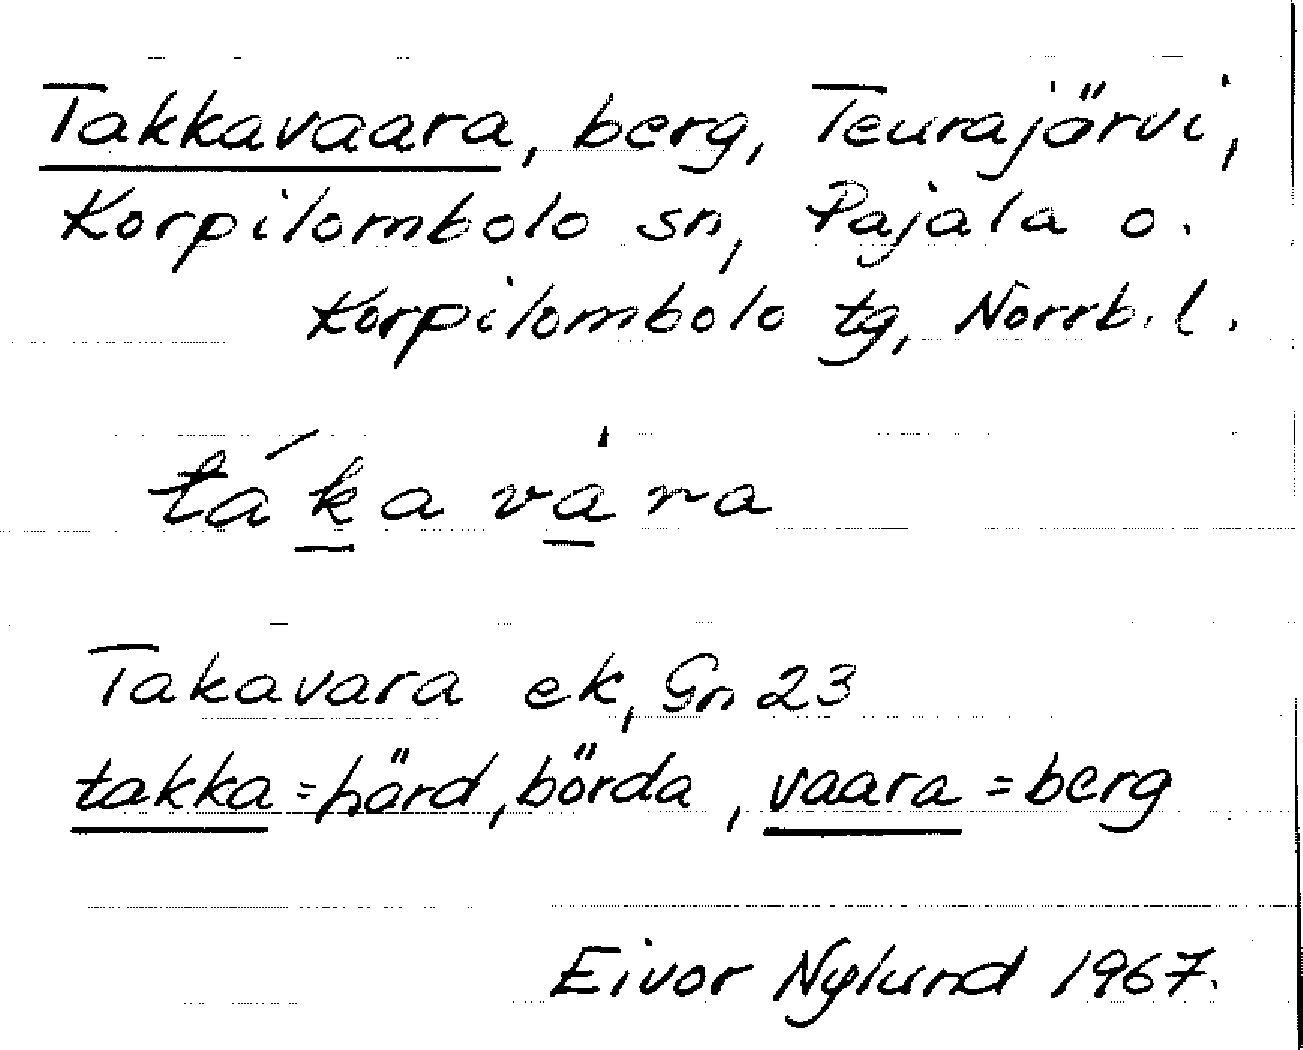 Takkavaara, berg, Teurajärvi,
Korpilombolo sn, Pajala o.
Korpilombolo tg, Norrb. l.
táḵava̱̍ra
Takavara ek, Gn 23
takka = härd, börda, vaara = berg
Eivor Nylund 1967.